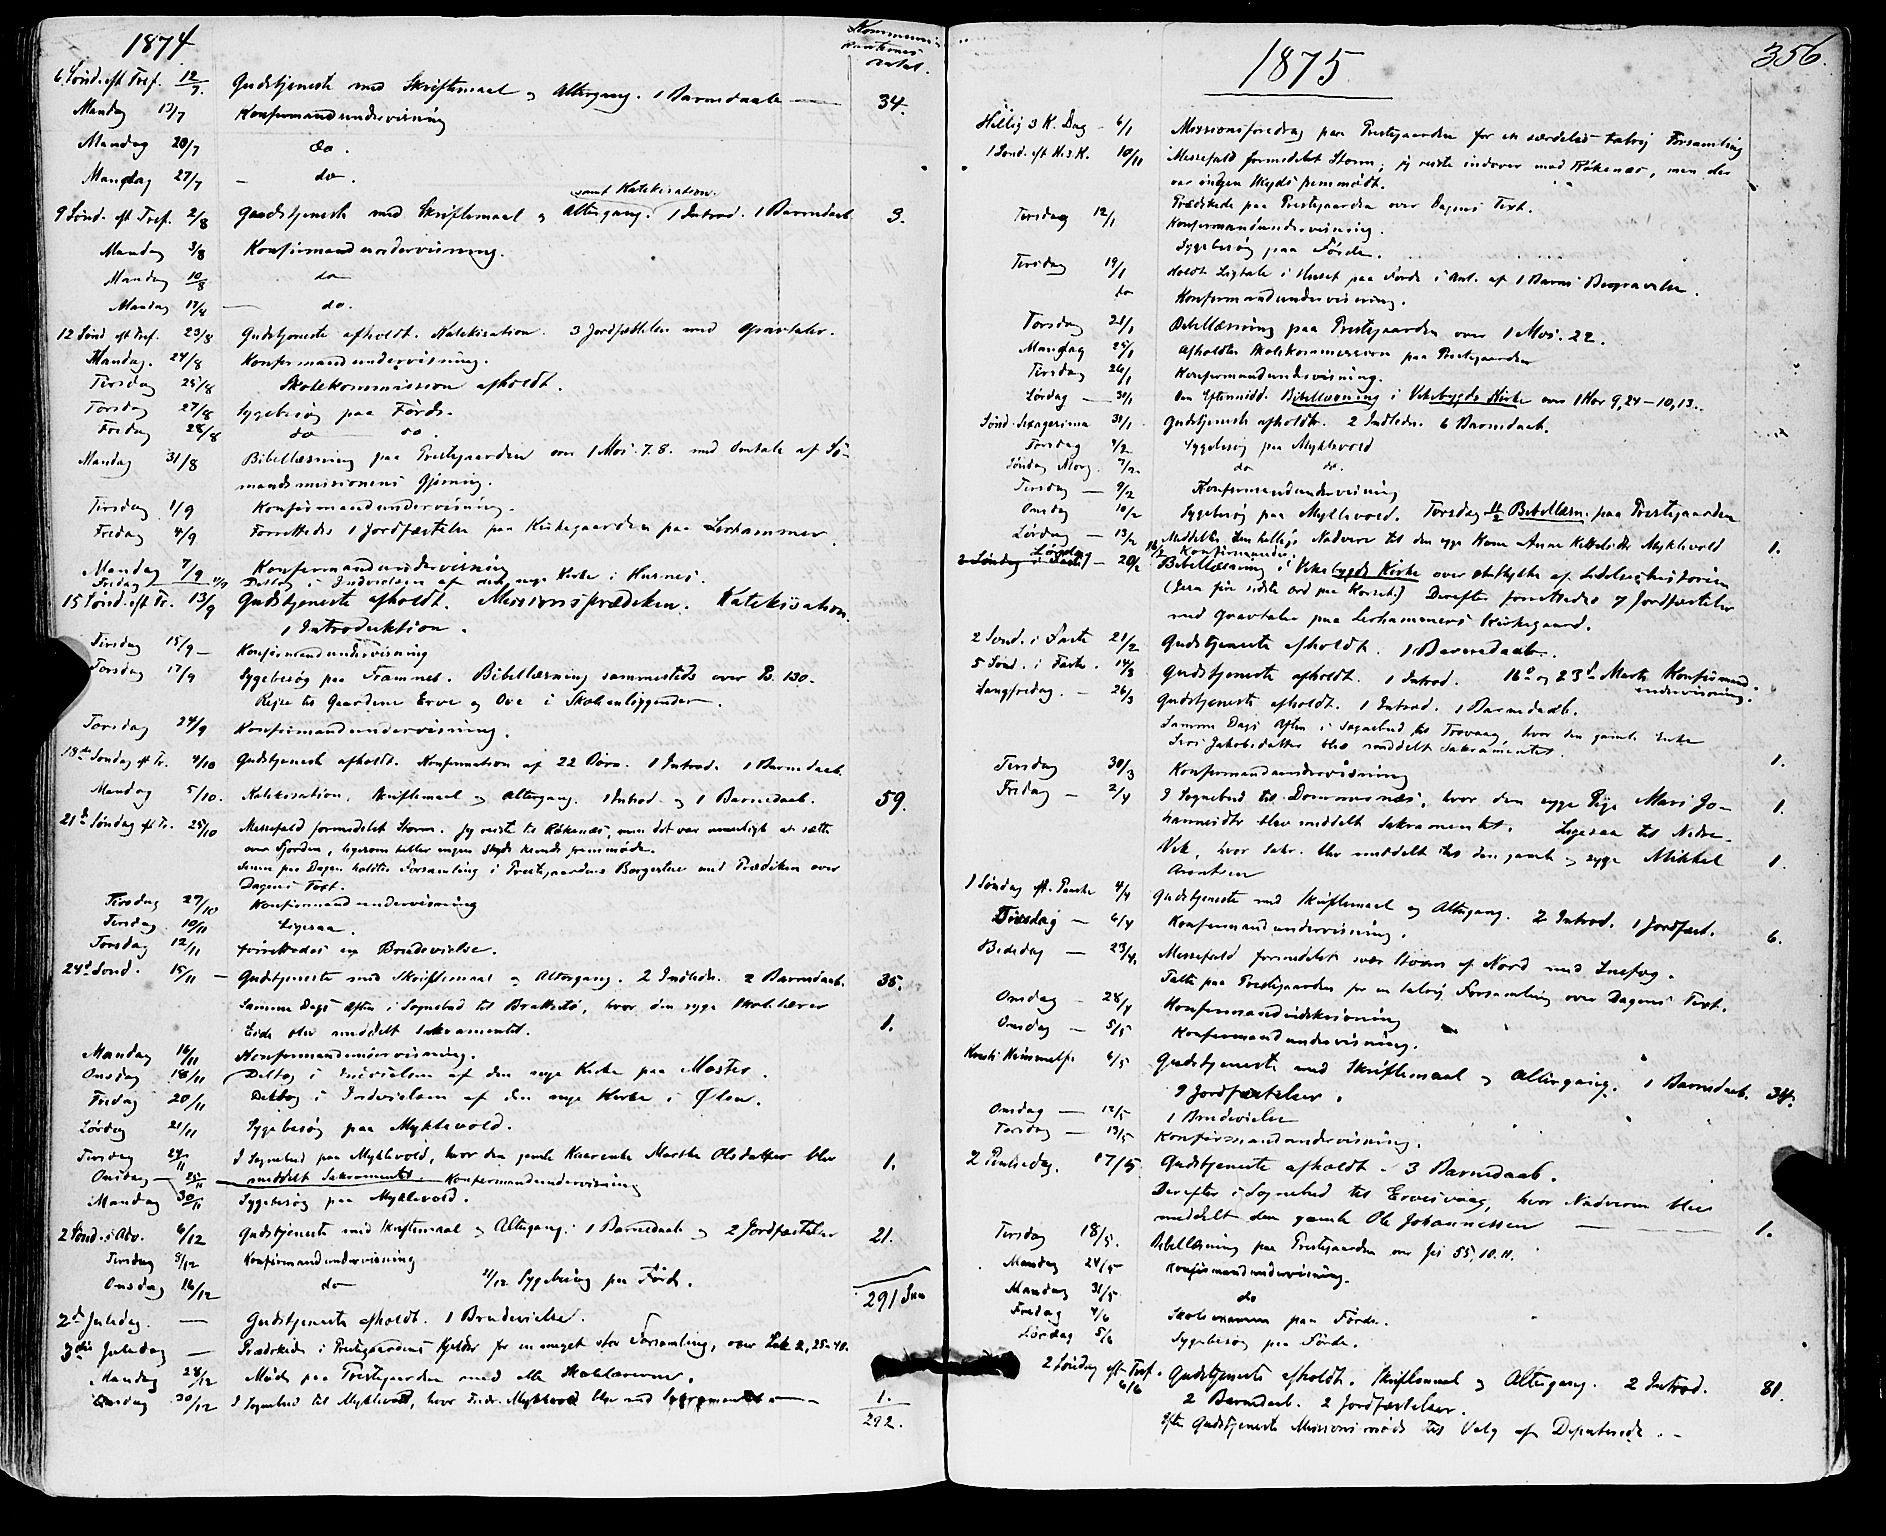 1874
Kommuni-
kanternes
Antal.
6 Sønd. eft Tref. 12/7. Gudstjeneste med Skriftemaal og Altergang. 1 Barnedaab — 34.
Mandag 13/7 Konfirmandundervisning
Mandag 20/7 do.
Mandag 27/7 — do.
samt Katekisation.
9 Sønd. eft Tref. 2/8 Gudstjeneste med Skriftemaal og Altergang. 1 Introd. 1 Barnedaab 3.
Mandag 3/8 Konfirmandundervisning.
Mandag 10/8 do
Mandag 17/8 — do.
12 Sønd eft Tref. 23/8 Gudstjeneste afholdt. Katekisation. 3 Jordfæstelser med Gravtaler.
Mandag. 24/8 Konfirmandundervisning.
Tirsdag 25/8 Skolekommission afholdt.
Torsdag 27/8 Sygebesøg paa Förde.
Fredag 28/8 do do.
Mandag 31/8 Bibellæsning paa Prestegaarden over 1 Mos. 7.8. med Omtale af Sø-
mandsmissionens Gjerning.
Tirsdag 1/9 Konfirmandundervisning.
Fredag 4/9 Forrettedes 1 Jordfæstelse paa Kirkegaarden paa Lerhammer.
Mandag 7/9 Konfirmandundervisning
Fredag 11/9 Deltog i Indvielsen af den nye Kirke i Husnes.
15 Sønd. eft Tr. 13/9 Gudstjeneste afholdt. Missionsprædiken. Katekisation.
1 Introduktion.
Tirsdag 15/9 — Konfirmandundervisning
Torsdag 17/9 Sygebesøg paa Framnes. Bibellæsning sammesteds over Ps. 130.
Rejse til Gaardene Erve og Ove i Skoleanliggender.
Torsdag 24/9 Konfirmandundervisning.
18de Søndag eft Tr. 4/10 Gudstjeneste afholdt. Konfirmation af 22 Børn. 1 Introd. 1 Barnedaab.
Mandag 5/10. Katekisation, Skriftemaal og Altergang. 1 Introd. og 1 Barnedaab. 59.
21de Søndag eft Tr. 25/10 Messefald formedelst Storm. Jeg reiste til Røkenæs, men det var umuligt at sætte
over Fjorden, ligesom heller ingen Skyds kunde fremmøde.
Senere paa Dagen holdtes Forsamling i Prestgaardens Borgestue med Prædiken over
Dagens Text.
Tirsdag 27/10 Konfirmandundervisning
Tirsdag 10/11 Ligesaa.
Torsdag 12/11 forrettedes en Brudevielse.
24de Sønd. 15/11 — Gudstjeneste med Skriftemaal og Altergang. 2 Indledn. 2 Barnedaab. 35.
Samme Dags Aften i Sognebud til Brattestø, hvor den syge Skolelærer
Eide blev meddelt Sakramentet. 1.
Mandag 16/11 Konfirmandundervisning.
Onsdag 18/11 Deltog i Indvielsen af den nye Kirke paa Moster.
Fredag 20/11 Deltog i Indvielsen af den nye Kirke i Ølen.
Lørdag 21/11 Sygebesøg paa Myklevold.
Tirsdag 24/11 I Sognebud paa Myklevold, hvor den gamle Kaarenke Marthe Olsdatter blev 1.
Onsdag — 25/11 meddelt Sakramentet. Konfirmandundervisning
Mandag 30/11 Sygebesøg paa Myklevold.
2 Sønd. i Adv. 6/12 Gudstjeneste med Skriftemaal og Altergang. 1 Barnedaab og 2 Jordfæstelser 21.
Tirsdag 8/12 Konfirmandundervisning
Onsdag 16/12 do 21/12 Sygebesøg paa Förde.
291
2den Juledag. — Gudstjeneste afholdt. 1 Brudevielse.
3die Juledag — Prædikede i Prestgaardens Kjelder for en meget stor Forsamling, over Luk 2, 25-40.
Mandag 28/12 Møde paa Prestgaarden med alle Skolelærerne.
Onsdag 30/12 I Sognebud til Myklevold, hvor Fredr. Myklevold blev 1.
292.
1875
356.
Hellig 3 K. Dag — 6/1 Missionsforedrag paa Prestgaarden for en særdeles talrig Forsamling
1 Sønd. eft H.3.K. 10/1 Messefald formedelst Storm; jeg reiste indover mod Røkenæs, men der
var ingen Skyds fremmødt.
Prædikede paa Prestgaarden over Dagens Text.
Tirsdag 12/1 Konfirmandundervisning.
Sygebesøg paa Förde.
Tirsdag 19/1 Holdt Ligtale i Huset paa Förde i Anl. af 1 Barns Begravelse.
do Konfirmandundervisning.
Torsdag 21/1 Bibellæsning paa Prestgaarden over 1 Mos. 22.
Mandag 25/1 Afholdtes Skolekommission paa Prestgaarden
Tirsdag 26/1 Konfirmandundervisning.
Lørdag — 30/1 Om Eftermidd. Bibellæsning i Vikebygds Kirke over 1 Kor 9,24-10,13.
Sønd. Sexagesima 31/1 Gudstjeneste afholdt. 2 Indledn. 6 Barnedaab.
Torsdag 4/2 Sygebesøg paa Myklevold
Søndag Morg. 7/2 do do.
Tirsdag — 9/2 Konfirmandundervisning
Onsdag 10/2 Sygebesøg paa Myklevold. Torsdag 11/2 Bibellæsn. paa Prestgaarden
Lørdag — 13/2 Meddeltes den hellige Nadvere til den syge Kone Anne Myklevold 1.
16/2 Konfirmander.
Lørdag — 20/2 Bibellæsning i Vikebygds Kirke over et Stykke af Lidelseshistorien
(Jesu fire sidste Ord paa Korset.) Derefter forrettedes 7 Jordfæstelser
med Gravtale paa Lerhammers Kirkegaard.
2 Sønd. i Faste 21/2 Gudstjeneste afholdt. 1 Barnedaab.
5 Sønd. i Faste. 14/3 Gudstjeneste afholdt. 1 Introd. 16de og 23de Marts Konfirmand-
undervisning.
Langfredag. — 26/3 Gudstjeneste afholdt. 1 Introd. 1 Barnedaab.
Samme Dags Aften i Sognebud til Trovaag, hvor den gamle Enke
Siri Jakobsdatter blev meddelt Sakramentet. 1.
Tirsdag 30/3 Konfirmandundervisning
Fredag — 2/4 I Sognebud til Dommesnæs, hvor den syge Pige Mari Jo- 1.
hannesdtr blev meddelt Sakramentet. Ligesaa til Nedre
Vik, hvor Sakr. blev meddelt til den gamle og syge Mikkel 1.
Arentsen
1 Søndag eft. Paaske 4/4 Gudstjeneste med Skriftemaal og Altergang. 2 Introd. 1 Jordfæst. 6.
Tirsdag — 6/4 Konfirmandundervisning.
Bededag — 23/4. Messefald formedelst svær Storm af Nord med Snefog.
Talte paa Prestgaarden for en talrig Forsamling over Dagens Text.
Onsdag — 28/4 Konfirmandundervisning
Onsdag — 5/5 Konfirmandundervisning.
Kristi Himmelf. 6/5 Gudstjeneste med Skriftemaal og Altergang. 1 Barnedaab. 34.
9 Jordfæstelser.
Onsdag — 12/5 1 Brudevielse
Torsdag — 13/5 Konfirmandundervisning.
2 Pintsedag. 17/5 Gudstjeneste afholdt. 3 Barnedaab.
Derefter i Sognebud til Ervesvaag, hvor Nadveren blev
meddelt den gamle Ole Johannessen — — — 1.
Tirsdag 18/5. Bibellæsning paa Prestgaarden over Jes 55, 10.11.
Mandag 24/5 Konfirmandundervisning.
Mandag 31/5 do
Fredag 4/6 Skoleexamen paa Förde.
Lørdag 5/6 Sygebesøg paa Förde.
2 Søndag eft Tref. 6/6 Gudstjeneste afholdt. Skriftemaal og Altergang. 2 Introd. 81.
2 Barnedaab. 2 Jordfæstelser.
Efter Gudstjeneste Missionsmøde til Valg af Deputerede. —